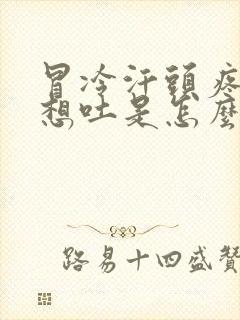 冒冷汗頭疼
想吐是怎麼
路易十四盛贊